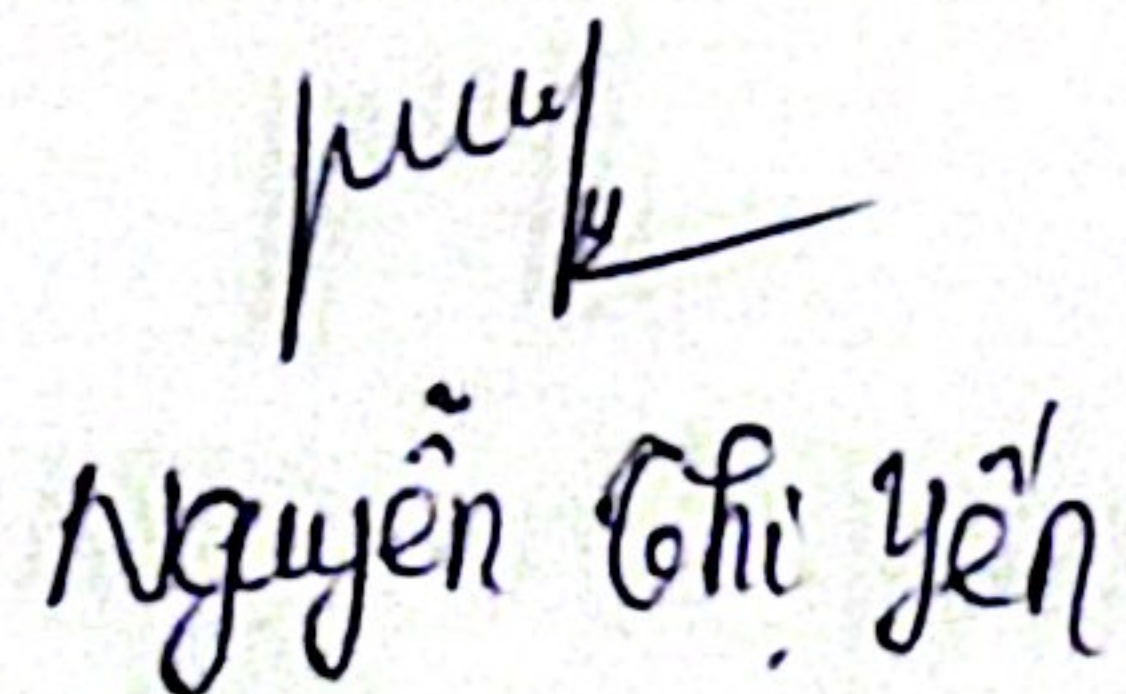 Nguyễn Thị Yến